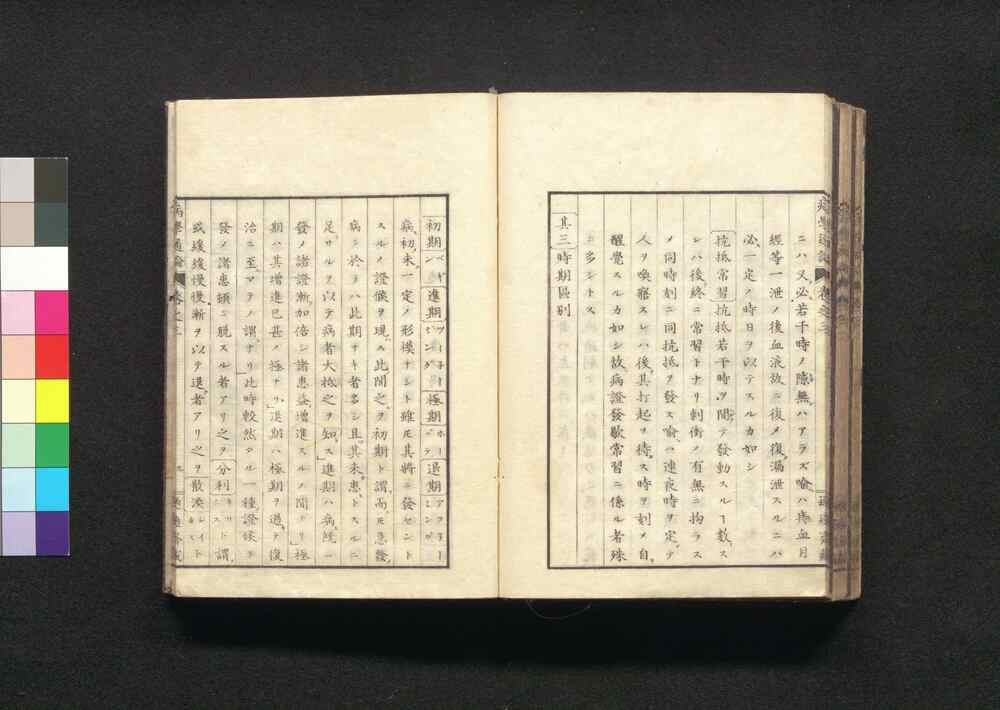 ニハ又必若干時ノ隙無ハアラズ喩ハ痔血月
經等一泄ノ後血液故ニ復メ復漏泄スルニハ
必一定ノ時日ヲ以テスルカ如シ
抗抵常習抗抵若干時ヲ間テ發動スルヿ數ス
レハ後終ニ常習トナリ刺衝ノ有無ニ拘ラス
メ同時刻ニ同抗抵ヲ發ス喩ハ連夜時ヲ定テ
人ヲ喚寤スレハ後其打起ヲ待ス時ヲ刻メ自
醒覺スルカ如シ故病證發歇常習ニ係ル者殊
ニ多シトス
其三時期區別
初期 進期 極期 退期
病初未一定ノ形模ナシト雖モ其將ニ發セント
スルノ證候ヲ現ス此間之ヲ初期ト謂而モ急發
病ニ於テハ此期ナキ者多シ且其未患トスルニ
足サルヲ以テ病者大抵之ヲ知ス進期ハ病既ニ
發メ諸證漸加倍シ諸患益增進スルノ間ナリ極
期ハ其增進已甚ノ極ナリ退期ハ極期ヲ過テ復
治ニ至マテノ謂ナリ此時較然タル一種證候ヲ
發メ諸患頓ニ脱スル者アリ之ヲ分利ト謂
或緩緩慢慢漸ヲ以テ退者アリ之ヲ散渙
病學通論 卷之三